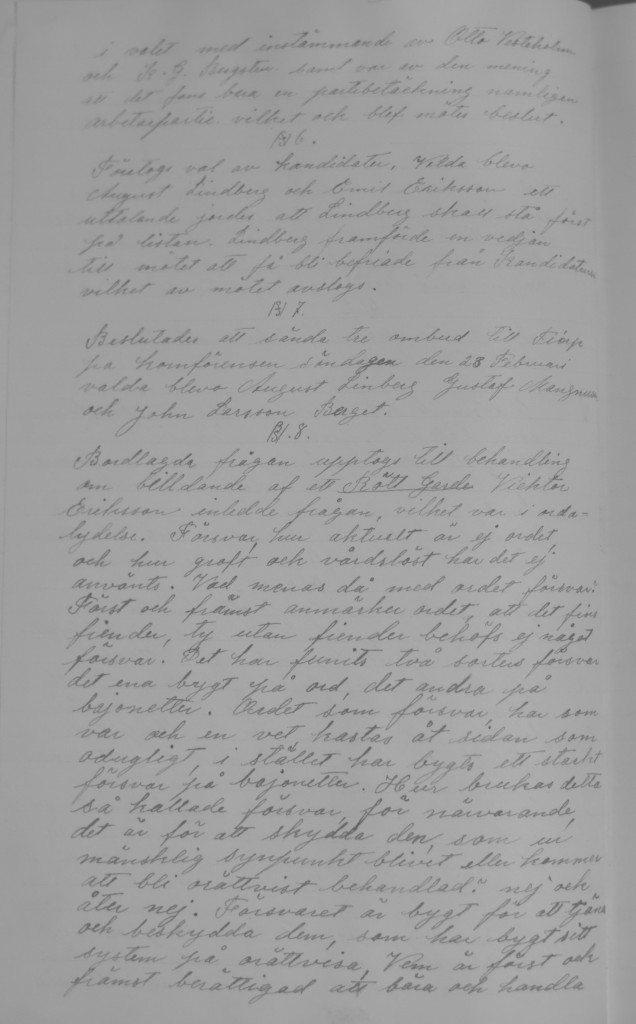 i valet med instämmande av Otto Västeholm
och K. G. Bergsten samt var av den mening
att det fans bara en partibeteckning nämligen
arbetarpartie vilket och blef mötes beslut.
§ 6.
Företogs val av kandidater. Valda blevo
August Lindberg och Emil Eriksson ett
uttalande jordes att Lindberg skall stå först
på listan. Lindberg framförde en vedjan
till mötet att få bli befriade från Kandidaturen
vilket av mötet avslogs.
§ 7.
Beslutades att sända tre ombud till Tierp
pa komförensen söndagen den 28 Februari
valda blevo August Linberg Gustaf Mangnusson
och John Larsson Berget.
§. 8.
Bordlagda frågan upptogs till behandling
om billdande af ett Rött Garde Vicktor
Eriksson inledde frågan, vilket var i orda=
lydelse. Försvar, hur aktuelt är ej ordet
och hur groft och vårdslöst har det ej
använts. Vad menas då med ordet försvar.
Först och främst anmärker ordet, att det fins
fiender, ty utan fiender behöfs ej något
försvar. Det har funits två sorters försvar
det ena bygt på ord, det andra på
bajonetter. Ordet som försvar, har som
var och en vet kastas åt sidan som
odugligt, i stället har bygts ett starkt
försvar på bajonetter. Hur brukas detta
så kallade försvar, för närvarande,
det är för att skydda den, som ur
mänsklig synpunkt blivet eller kommer
att bli orättvist behandlad." nej och
åter nej. Försvaret är bygt för att tjäna
och beskydda dem, som har bygt sitt
system på orättvisa, Vem är först och
främst berättigad att bära och handla